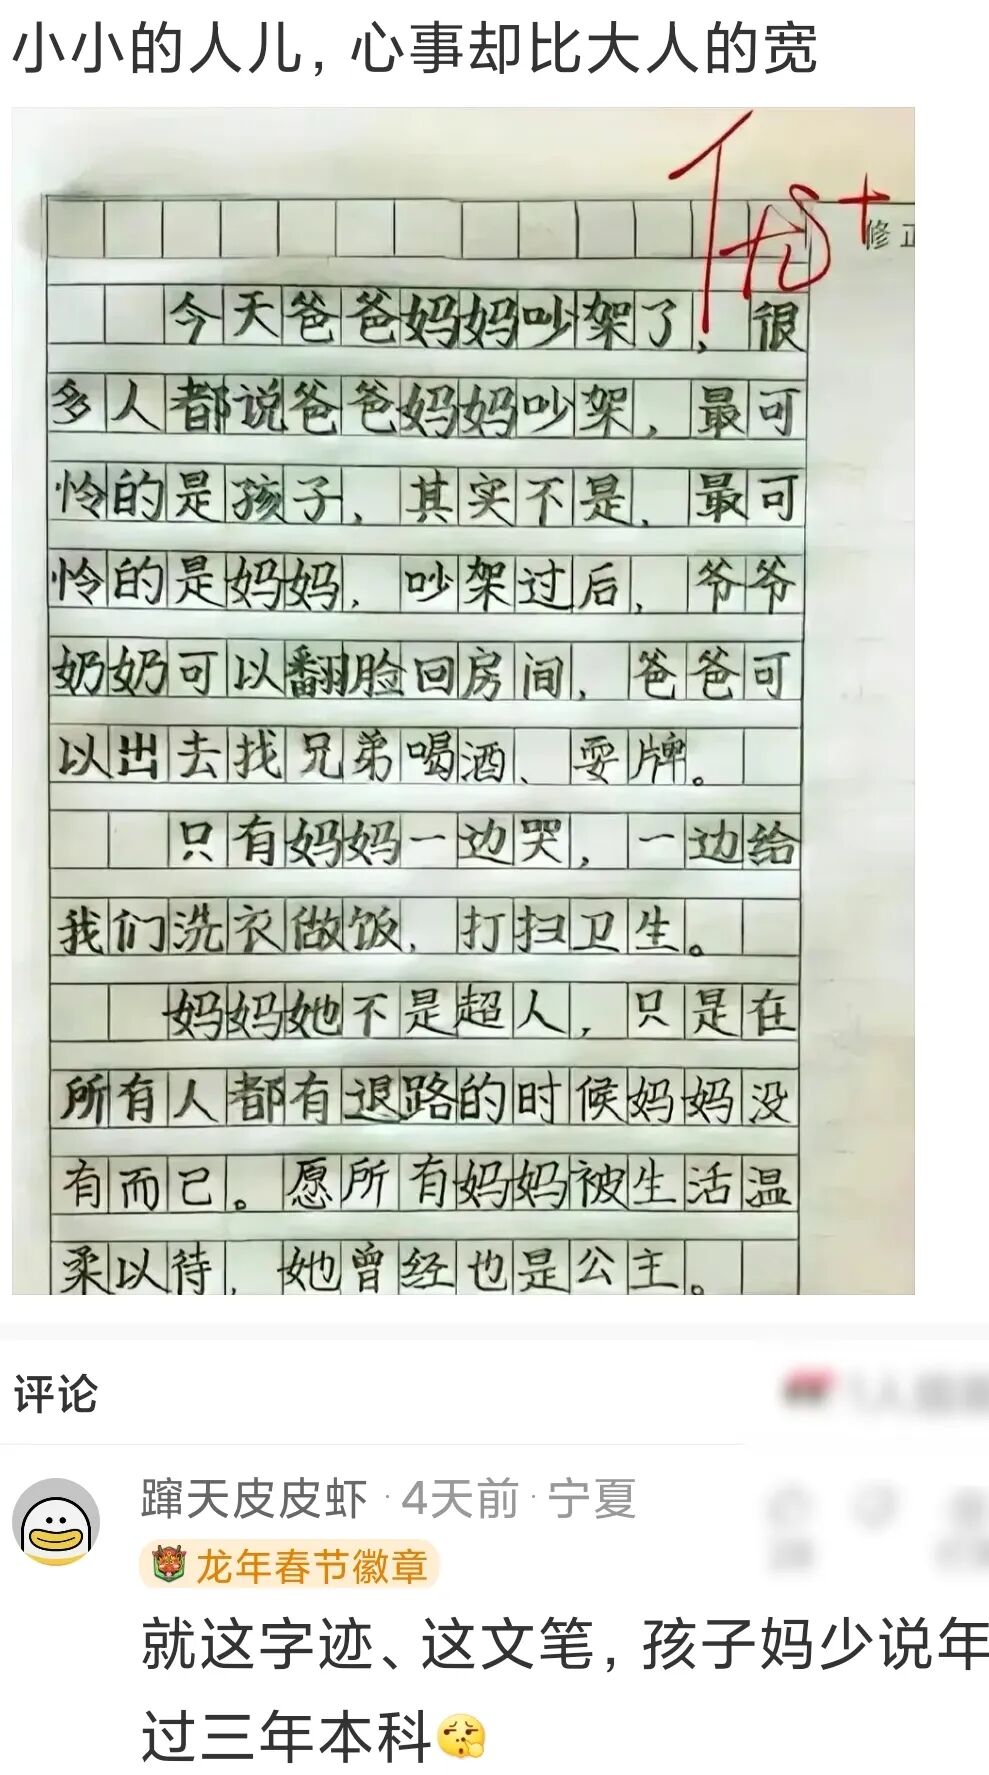 小小的人儿，心事却比大人的宽
优+
修正
今天爸爸妈妈吵架了，很
多人都说爸爸妈妈吵架，最可
怜的是孩子，其实不是，最可
怜的是妈妈，吵架过后，爷爷
奶奶可以翻脸回房间，爸爸可
以出去找兄弟喝酒、耍牌。
只有妈妈一边哭，一边给
我们洗衣做饭，打扫卫生。
妈妈她不是超人，只是在
所有人都有退路的时候妈妈没
有而己。愿所有妈妈被生活温
柔以待，她曾经也是公主。
评论
蹿天皮皮虾·4天前·宁夏
龙年春节徽章
就这字迹、这文笔，孩子妈少说年
过三年本科